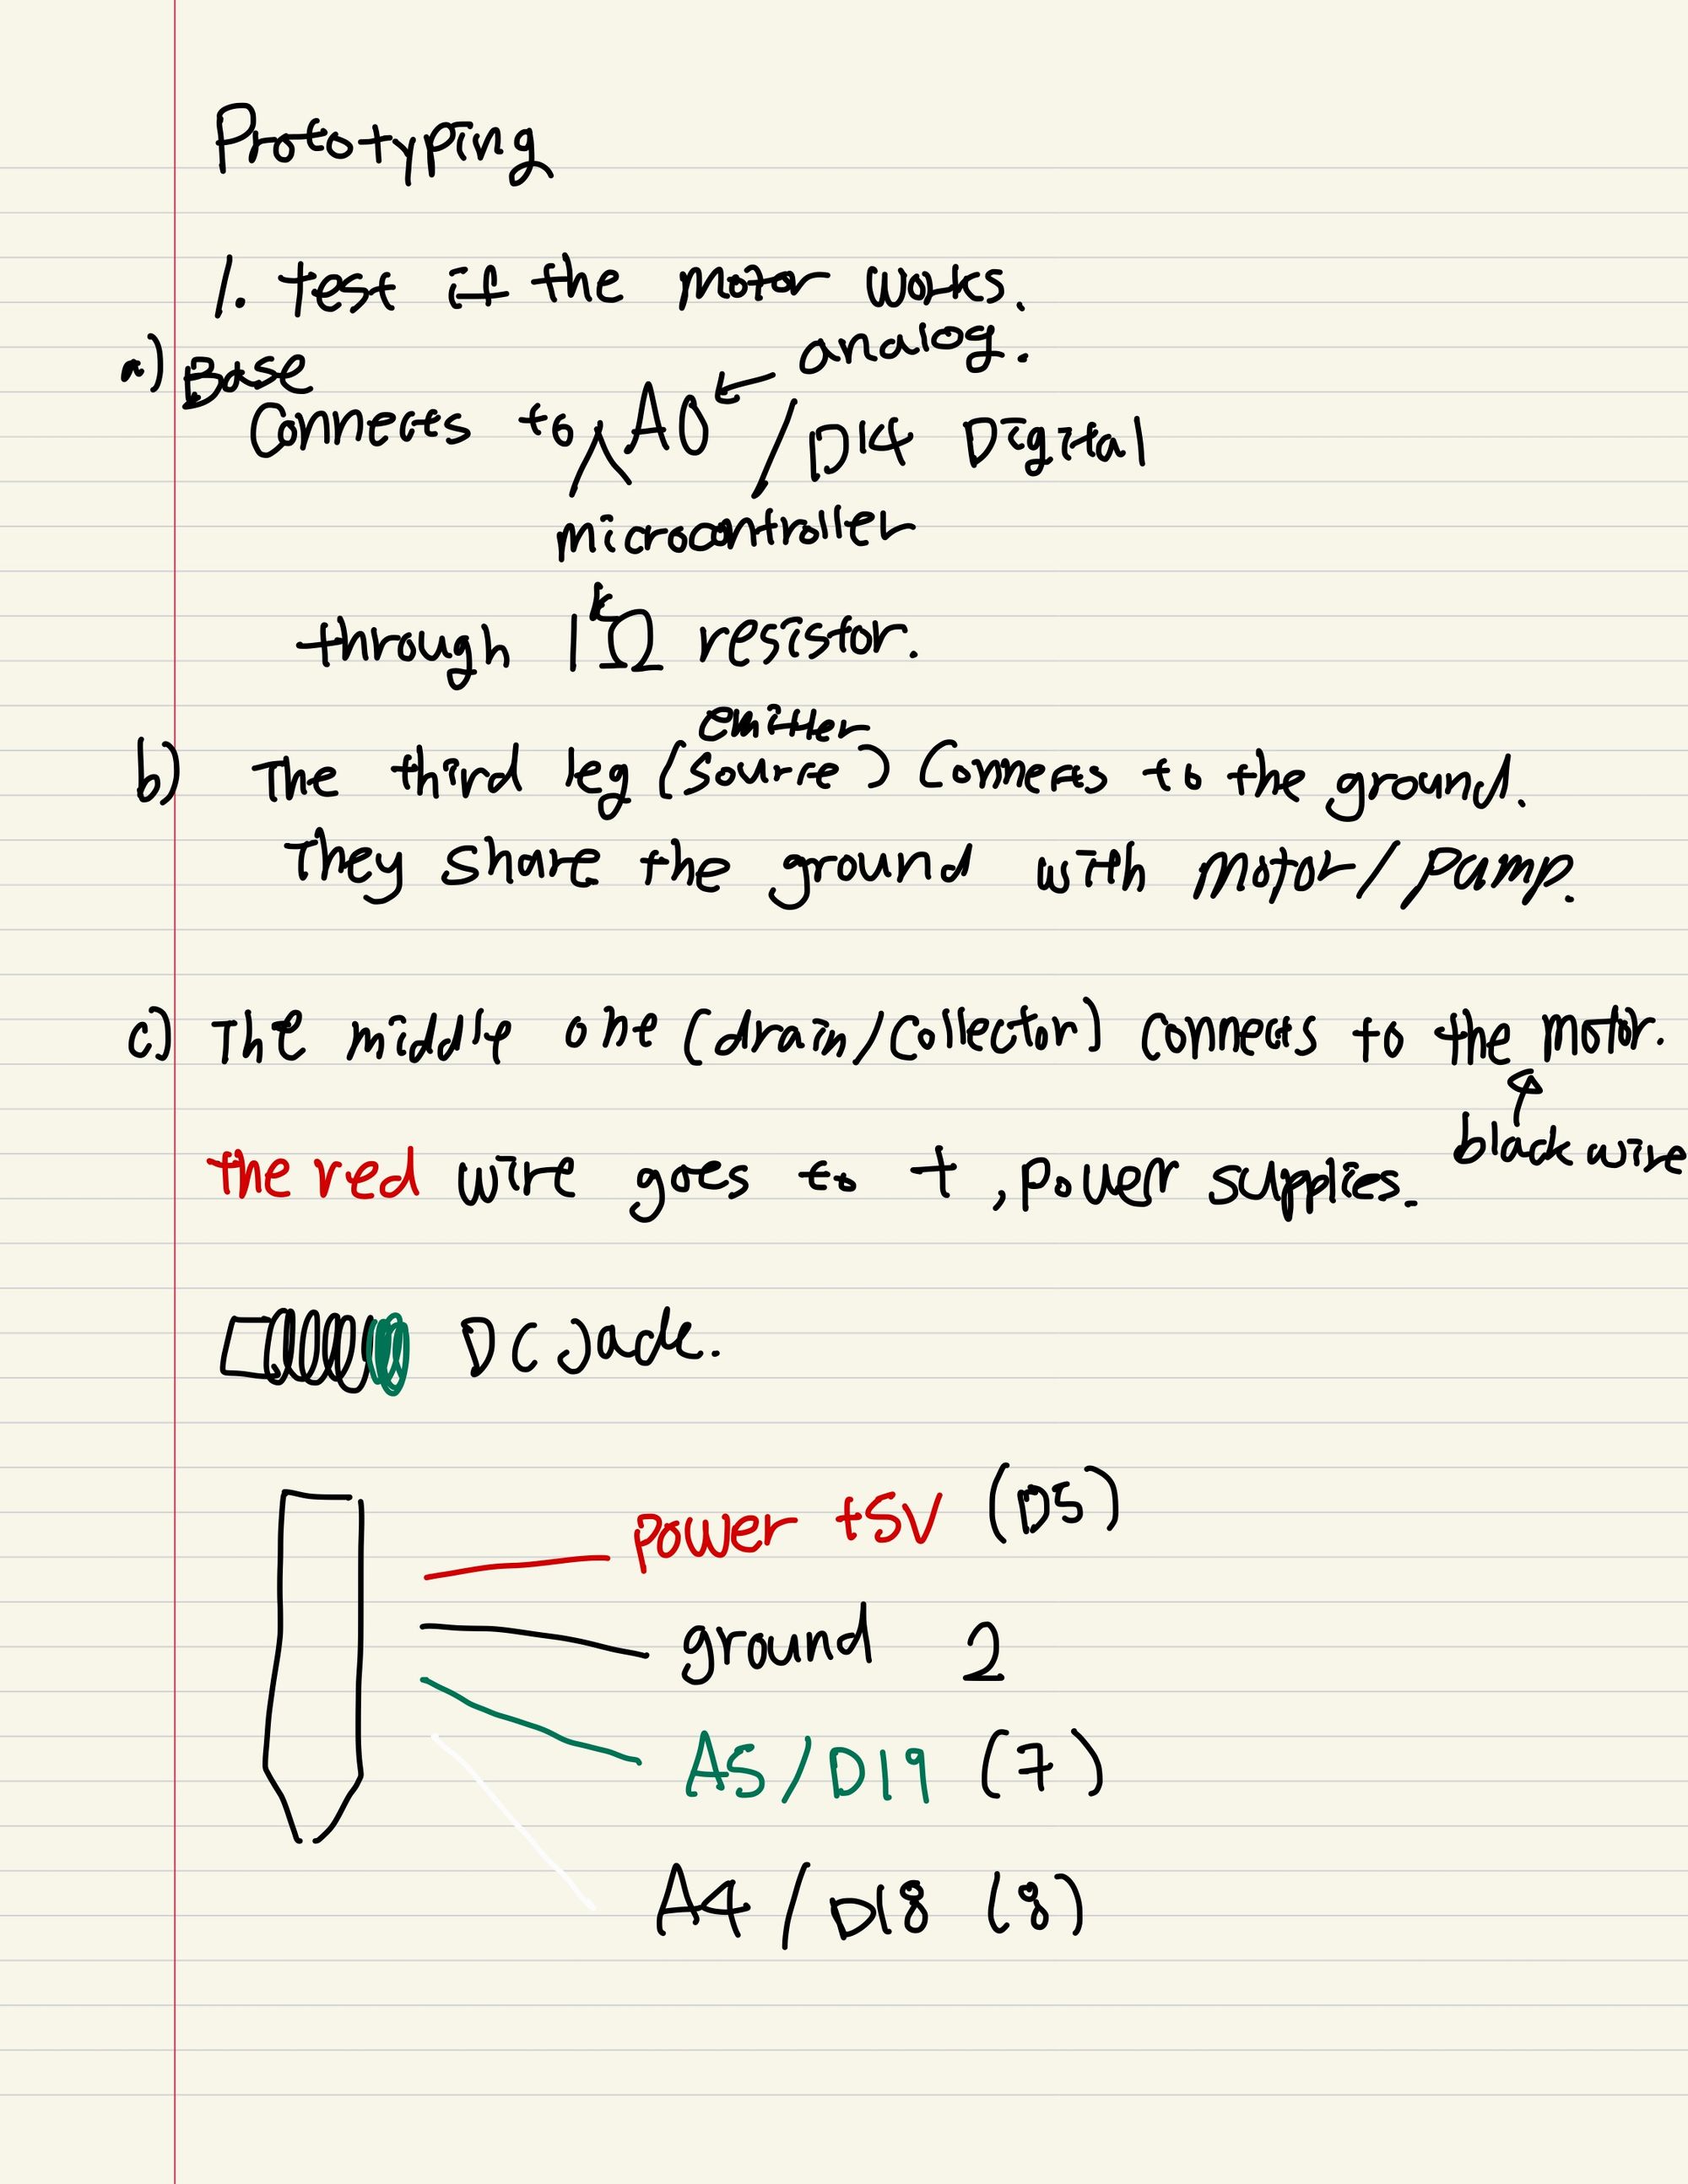 Prototyping
1. test if the motor works.
a) Base
analog.
Connects to A0 / D14 Digital
microcontroller
through 1kΩ resistor.
emitter
b) The third leg (source) Connects to the ground.
They share the ground with motor/pump.
c) The middle one (drain/collector) connects to the motor.
black wire
the red wire goes to +, power supplies.
DC Jack.
power +5V (D5)
ground 2
A5/D19 (7)
A4/D18 (8)